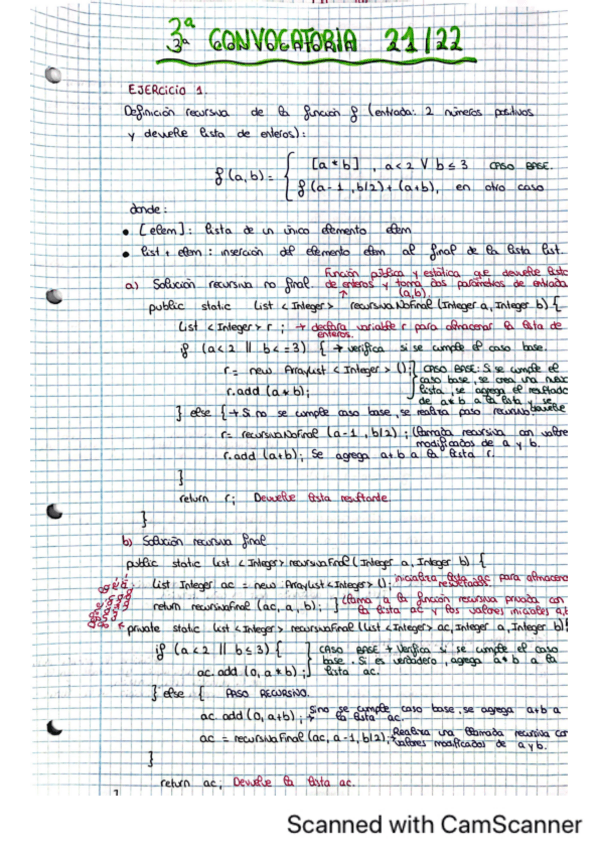 3ª CONVOCATORIA 21/22
3ª
EJERCICIO 1.
Definición recursiva de la función f (entrada: 2 números positivos
y devuelve lista de enteros):
f(a,b) = { [a*b] , a<2 V b≤3 CASO BASE.
f(a-1,b/2)+(a+b), en otro caso
donde:
• [elem]: lista de un único elemento elem
• list + elem: inserción del elemento elem al final de la lista list.
Función pública y estática que devuelve lista
a) Solución recursiva no final. de enteros y toma dos parámetros de entrada
(a,b)
public static List <Integer> recursivaNofinal (Integer a, Integer b) {
List <Integer> r ; → declara variable r para almacenar la lista de
enteros.
if (a<2 || b<=3) { → verifica si se cumple el caso base.
r = new ArrayList <Integer> (); CASO BASE: Si se cumple el
caso base, se crea una
r.add (a*b); lista, se agrega el resultado
de a*b a la lista y se
} else { → Si no se cumple caso base, se realiza paso recursivo devuelve
r = recursivaNofinal (a-1, b/2) ; (llamada recursiva con
modificados de a y b.
r.add (a+b); Se agrega a+b a la lista r.
}
return r; Devuelve lista resultante
}
b) Solución recursiva final
public static List <Integer> recursivaFinal (Integer a, Integer b) {
List Integer ac = new ArrayList <Integer> (); inicializa lista ac para almacenar
resultados.
return recursivaFinal (ac, a, b); ] (llama a la función recursiva privada con
la lista ac y los valores iniciales a,b
private static List <Integer> recursivaFinal (List <Integer> ac, Integer a, Integer b){
if (a<2 || b≤3) { CASO BASE → Verifica si se cumple el caso
base. Si es verdadero, agrega a*b a la
ac.add (0, a*b); lista ac.
} else { PASO RECURSIVO.
ac.add (0, a+b) ; Si no se cumple caso base, se agrega a+b a
la lista ac.
ac = recursivaFinal (ac, a-1, b/2); Realiza una llamada recursiva con
valores modificados de a y b.
}
return ac; Devuelve la lista ac.
Scanned with CamScanner